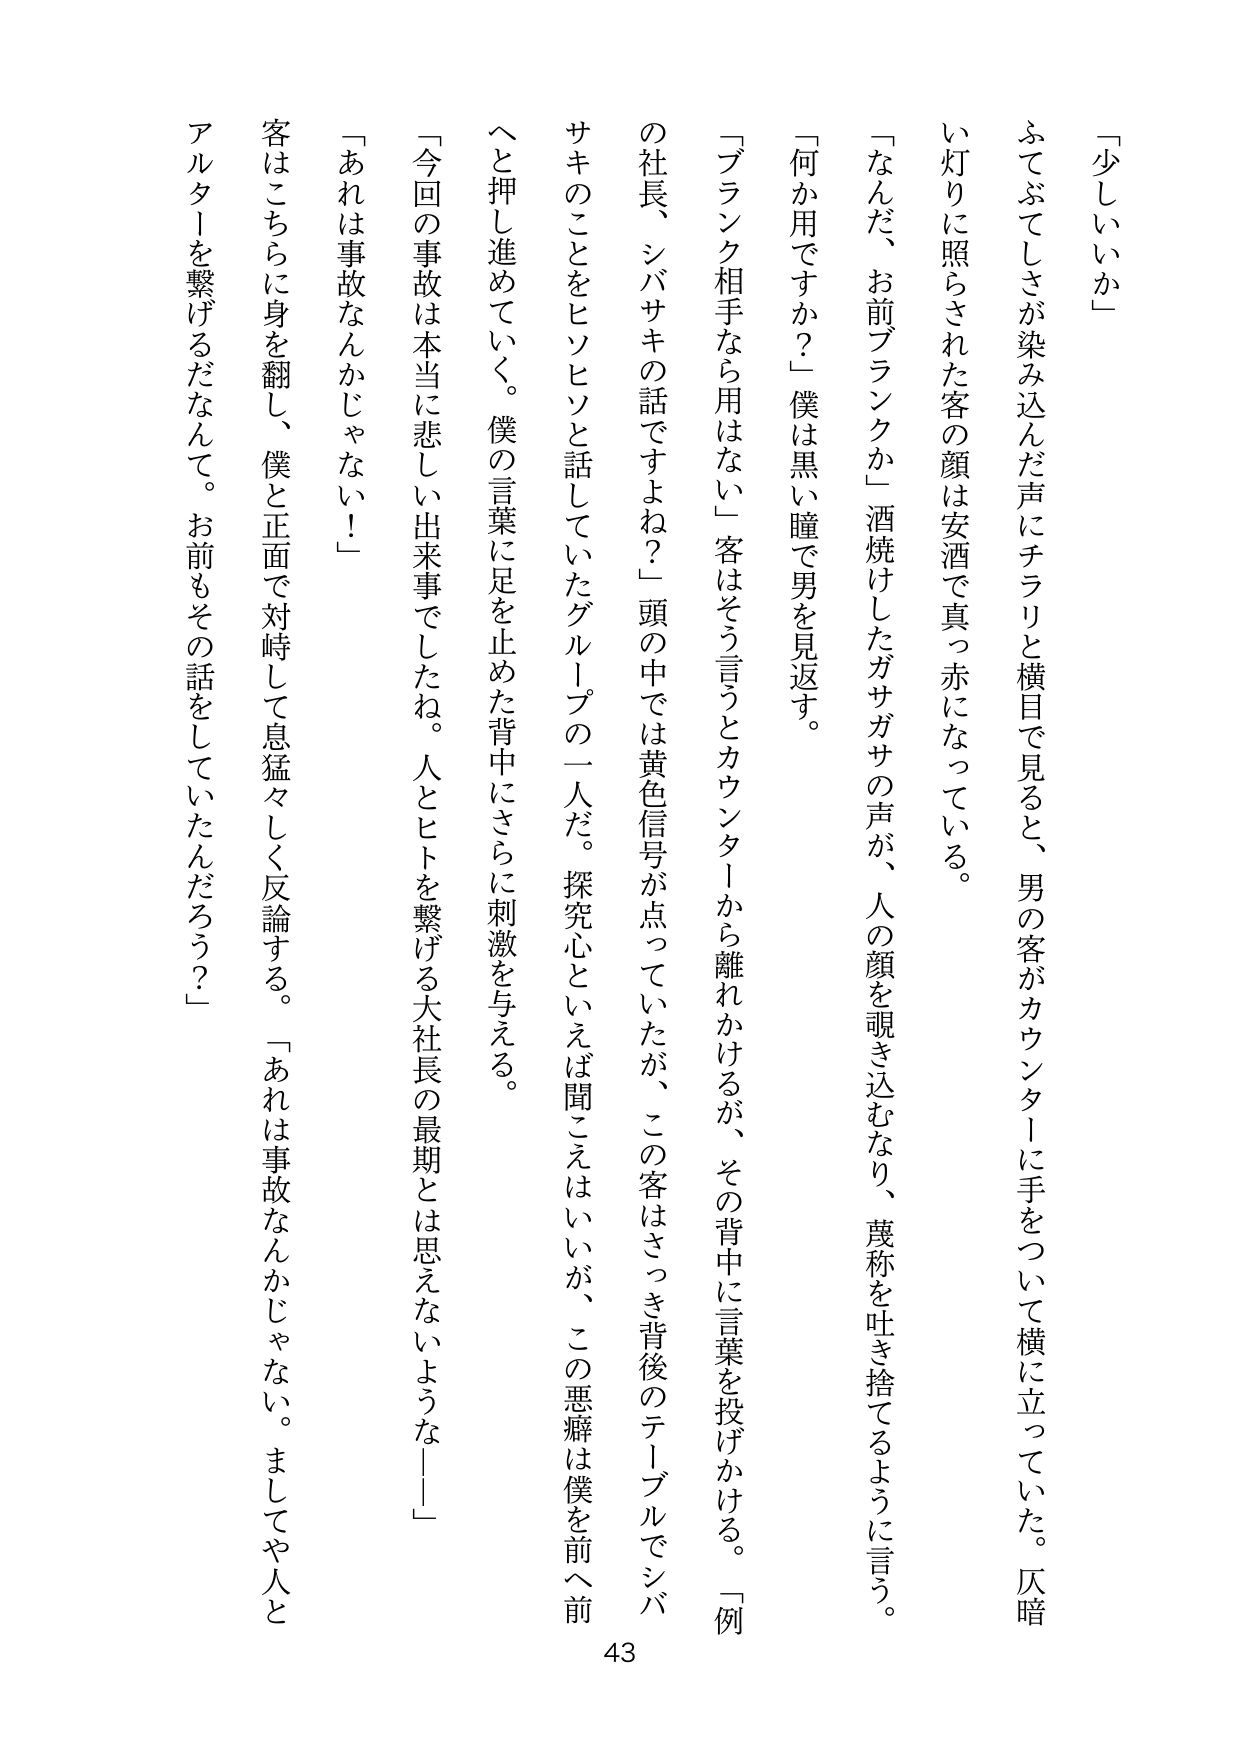 「少しいいか」
ふてぶてしさが染み込んだ声にチラリと横目で見ると、男の客がカウンターに手をついて横に立っていた。仄暗
い灯りに照らされた客の顔は安酒で真っ赤になっている。
「なんだ、お前ブランクか」酒焼けしたガサガサの声が、人の顔を覗き込むなり、蔑称を吐き捨てるように言う。
「何か用ですか？」僕は黒い瞳で男を見返す。
「ブランク相手なら用はない」客はそう言うとカウンターから離れかけるが、その背中に言葉を投げかける。「例
の社長、シバサキの話ですよね？」頭の中では黄色信号が点っていたが、この客はさっき背後のテーブルでシバ
サキのことをヒソヒソと話していたグループの一人だ。探究心といえば聞こえはいいが、この悪癖は僕を前へ前
へと押し進めていく。僕の言葉に足を止めた背中にさらに刺激を与える。
「今回の事故は本当に悲しい出来事でしたね。人とヒトを繋げる大社長の最期とは思えないような――」
「あれは事故なんかじゃない！」
客はこちらに身を翻し、僕と正面で対峙して息猛々しく反論する。「あれは事故なんかじゃない。ましてや人と
アルターを繋げるだなんて。お前もその話をしていたんだろう？」
43